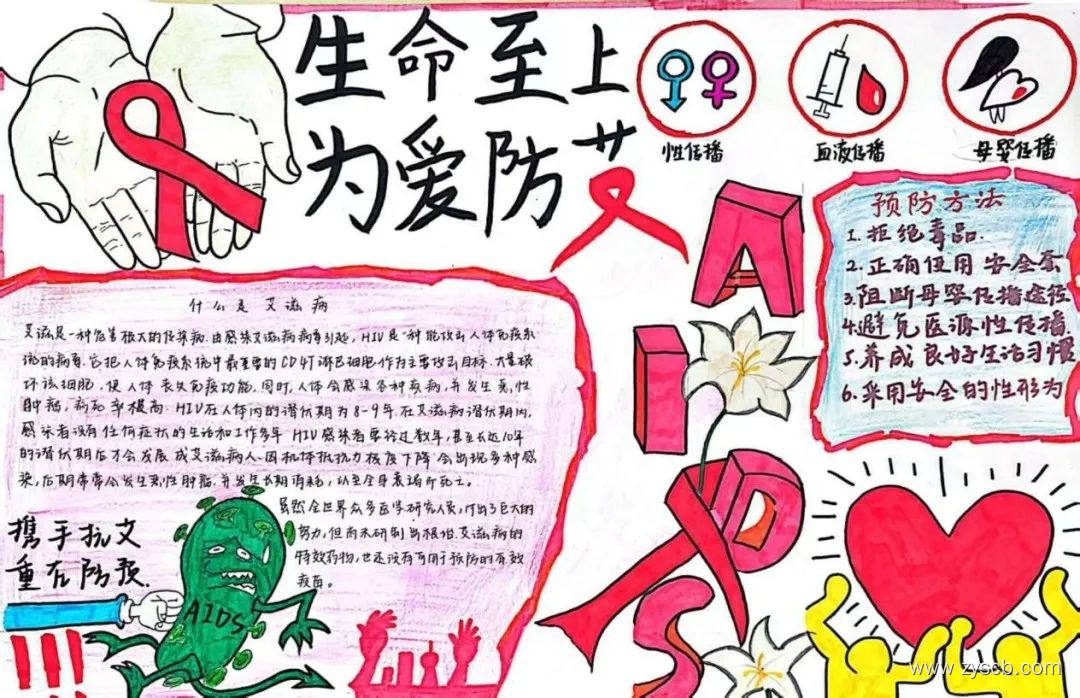 生命至上
为爱防艾
性传播
血液传播
母婴传播
预防方法
1.拒绝毒品.
2.正确使用安全套
3.阻断母婴传播途径
4.避免医源性传播.
5.养成良好生活习惯
6.采用安全的性形为
AIDS
什么是艾滋病
艾滋是一种危害极大的传染病.由感染艾滋病病毒引起,HIV是一种能攻击人体免疫系
统的病毒.它把人体免疫系统中最重要的CD4T淋巴细胞作为主要攻击目标.大量破
坏该细胞,使人体丧失免疫功能.同时,人体会感染各种疾病,并发生恶性
肿瘤,病死率极高.HIV在人体内的潜伏期为8-9年.在艾滋病潜伏期内,
感染者没有任何症状的生活和工作多年 HIV感染者要经过数年,甚至长达10年
的潜伏期后才会发展成艾滋病人.因机体抵抗力极度下降会出现多种感
染,后期常常会发生恶性肿瘤.并发生长期消耗,以至全身衰竭而死亡.
虽然全世界众多医学研究人员,付出了巨大的
努力,但尚未研制出根治艾滋病的
特效药物,也还没有可用于预防的有效
疫苗。
携手抗艾
重在防预.
AIDS
www.zyscb.com